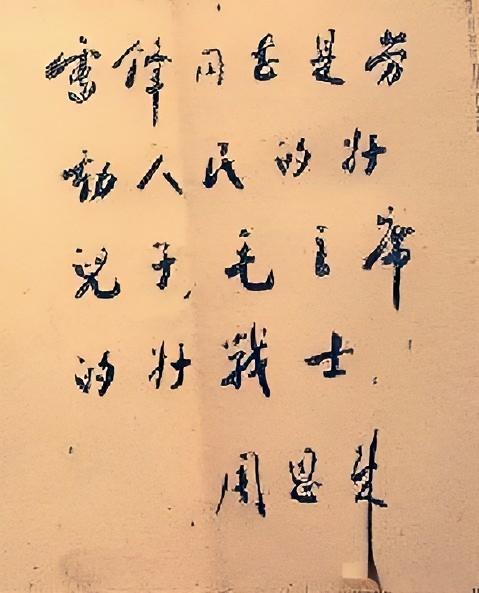 雷鋒同志是劳
動人民的好
兒子,毛主席
的好戰士.
周恩来